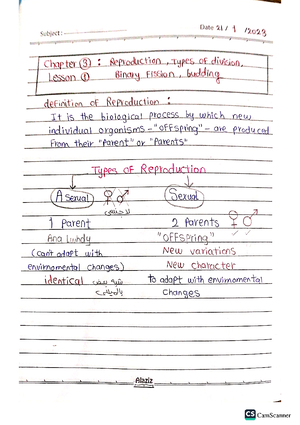 Subject:
Date 21/ 1 /2023
Chapter (3) : Reproduction, Types of division,
Lesson (1) Binary Fission, budding
definition of Reproduction :
It is the biological process by which new
individual organisms - "OFFspring" - are produced
From their "Parent" or "Parents"
Types of Reproduction
Asexual ♀ ♂ Sexual
1 Parent 2 Parents ♀ ♂
"OFFspring"
(can't adapt with New variations
envirnomental changes) New character
identical to adapt with envirnomental
changes
Alaziz
CS CamScanner